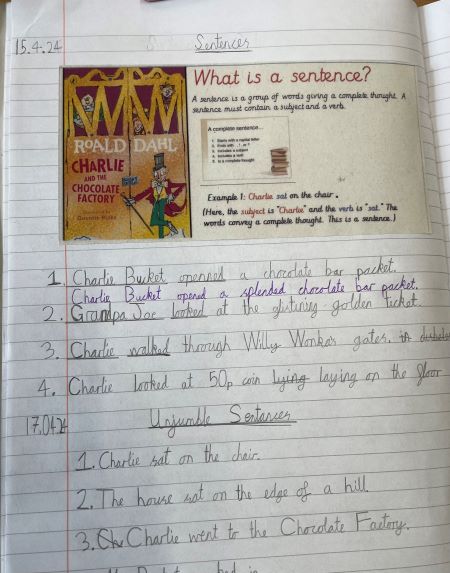 15.4.24 Sentences
What is a sentence?
A sentence is a group of words giving a complete thought. A
sentence must contain a subject and a verb.
A complete sentence...
1. Starts with a capital letter
2. Ends with . ! or ?
3. Includes a subject
4. Includes a verb
5. Is a complete thought
ROALD DAHL
CHARLIE
AND THE
CHOCOLATE
FACTORY
Quentin Blake
Example 1: Charlie sat on the chair.
(Here, the subject is "Charlie" and the verb is "sat." The
words convey a complete thought. This is a sentence.)
1. Charlie Bucket openned a chocolate bar packet.
Charlie Bucket opened a splended chocolate bar packet.
2. Grandpa Joe looked at the glistering golden ticket.
3. Charlie walked through Willy Wonka's gates. in
4. Charlie looked at 50p coin lying laying on the floor
17.04.24 Unjumble Sentences
1. Charlie sat on the chair.
2. The house sat on the edge of a hill.
3. Charlie went to the Chocolate Factory.